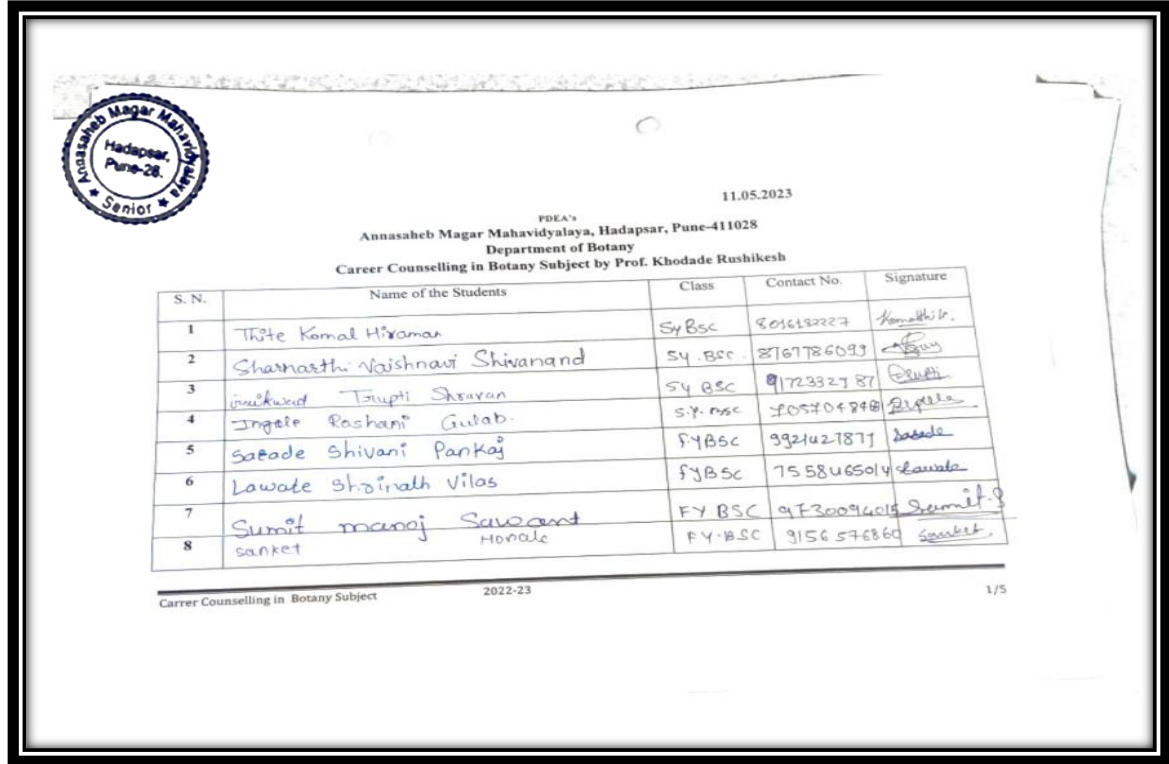 Annasaheb Magar Mahavidyalaya
Hadapsar,
Pune-28.
★ Senior ★
11.05.2023
PDEA's
Annasaheb Magar Mahavidyalaya, Hadapsar, Pune-411028
Department of Botany
Career Counselling in Botany Subject by Prof. Khodade Rushikesh
S. N. Name of the Students Class Contact No. Signature
1 Thite Komal Hiraman SyBsc 8016182227
2 Sharnarthi Vaishnavi Shivanand SY.BSC. 8767786099
3 Trupti Shravan SY BSC 9172332787 Trupti
4 Ingale Roshani Gulab. S.Y. Bsc
5 Sarade Shivani Pankaj F.YBSC 9921427877 Sarade
6 Lawate Shrinath Vilas FYBSC 7558465014 Lawate
7 Sumit manoj Sawant FY BSC 9730094015 Sumit.S
8 sanket Honale FY.BSC 9156576860 Sanket.
Carrer Counselling in Botany Subject 2022-23 1/5